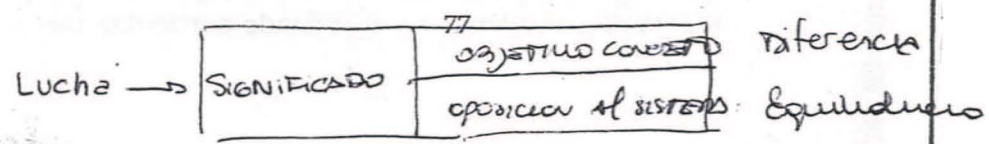 77
Lucha → SIGNIFICADO
OBJETIVO CONCRETO Diferencia
OPOSICION Al SISTEMA: Equivalencia